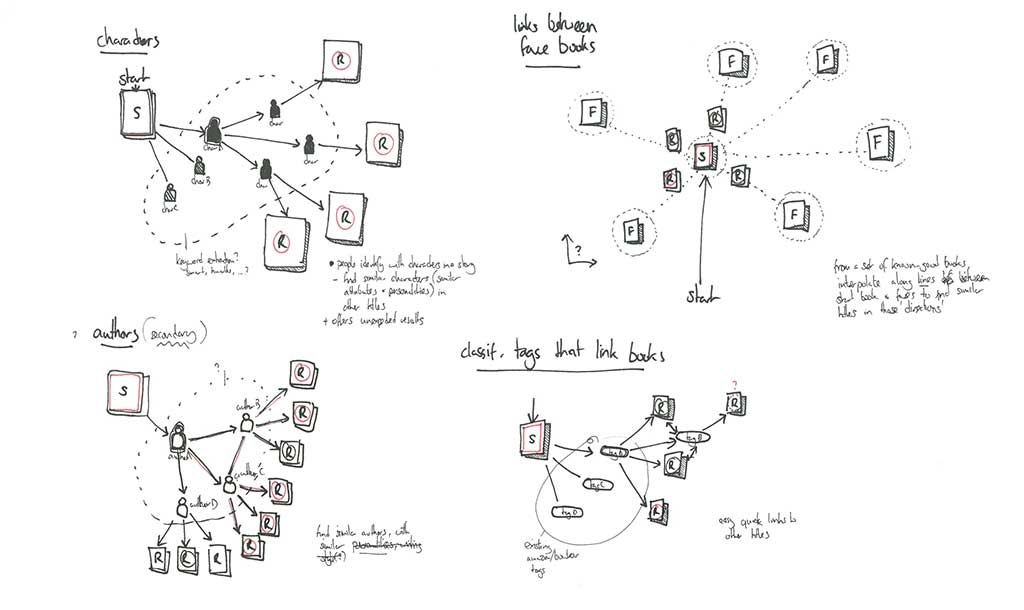 characters
start
S
R
char A
char
R
char
char B
char
char C
R
R
keyword extraction?
smart, humble, ...?
• people identify with characters in a story
- find similar characters (similar
attributes + personalities) in
other titles
+ offers unexpected results
links between
fave books
F
F
F
R
R
S
F
R
R
F
F
?
start
from a set of known-good books,
interpolate along lines between
start book & faves to find similar
titles in those 'directions'
? authors (secondary)
S
?
R
author B
R
author
R
author C
R
author D
R
R
R
R
R
find similar authors, with
similar personalities, writing
style(?)
classif. tags that link books
?
R
R
S
tag B
tag A
R
tag C
tag D
R
existing
amazon/
tags
easy quick links to
other titles